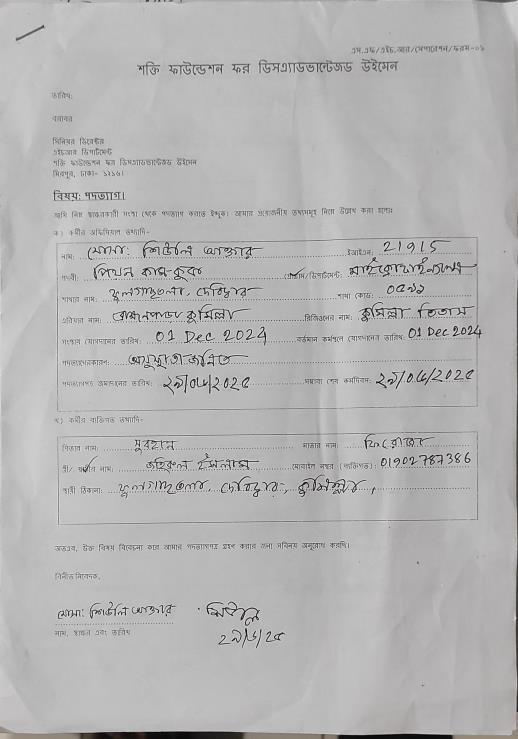 এস.এফ/এইচ.আর/সেপারেশন/ফরম-০১
শক্তি ফাউন্ডেশন ফর ডিসএ্যাডভান্টেজড উইমেন
তারিখ:
বরাবর
সিনিয়র ডিরেক্টর
এইচআর ডিপার্টমেন্ট
শক্তি ফাউন্ডেশন ফর ডিসএ্যাডভান্টেজড উইমেন
মিরপুর, ঢাকা- ১২১৬।
বিষয়: পদত্যাগ।
আমি নিম্ন স্বাক্ষরকারী সংস্থা থেকে পদত্যাগ করতে ইচ্ছুক। আমার প্রয়োজনীয় তথ্যসমূহ নিম্নে উল্লেখ করা হলোঃ
ক) কর্মীর অফিসিয়াল তথ্যাদি-
নাম: মোসা: শিউলি আক্তার ইআইএন: 21915
পদবী: পিয়ন কাম-কুক প্রোগ্রাম/ডিপার্টমেন্ট: মাইক্রোফাইন্যান্স
শাখার নাম: ফুলগাছতলা, দেবিদ্বার শাখা কোড: ০৫৯১
এরিয়ার নাম: কুমিল্লা রিজিওনের নাম: কুমিল্লা তিতাস
সংস্থায় যোগদানের তারিখ: 01 Dec 2024 বর্তমান কর্মস্থলে যোগদানের তারিখ: 01 Dec 2024
পদত্যাগের কারন: অসুস্থতা জনিত
পদত্যাগপত্র জমাদানের তারিখ: ২৯/০৬/২০২৫ সম্ভাব্য শেষ কর্মদিবস: ২৯/০৬/২০২৫
খ) কর্মীর ব্যক্তিগত তথ্যাদি-
পিতার নাম: সুবহান মাতার নাম: ফিরোজা
স্ত্রী/ স্বামীর নাম: জহিরুল ইসলাম মোবাইল নম্বর (ব্যক্তিগত): 01902787386
স্থায়ী ঠিকানা: ফুলগাছতলা, দেবিদ্বার, কুমিল্লা,
অতএব, উক্ত বিষয় বিবেচনা করে আমার পদত্যাগপত্র গ্রহণ করার জন্য সবিনয় অনুরোধ করছি।
বিনীত নিবেদক,
মোসা: শিউলি আক্তার শিউলি
নাম, স্বাক্ষর এবং তারিখ ২৯/৬/২৫